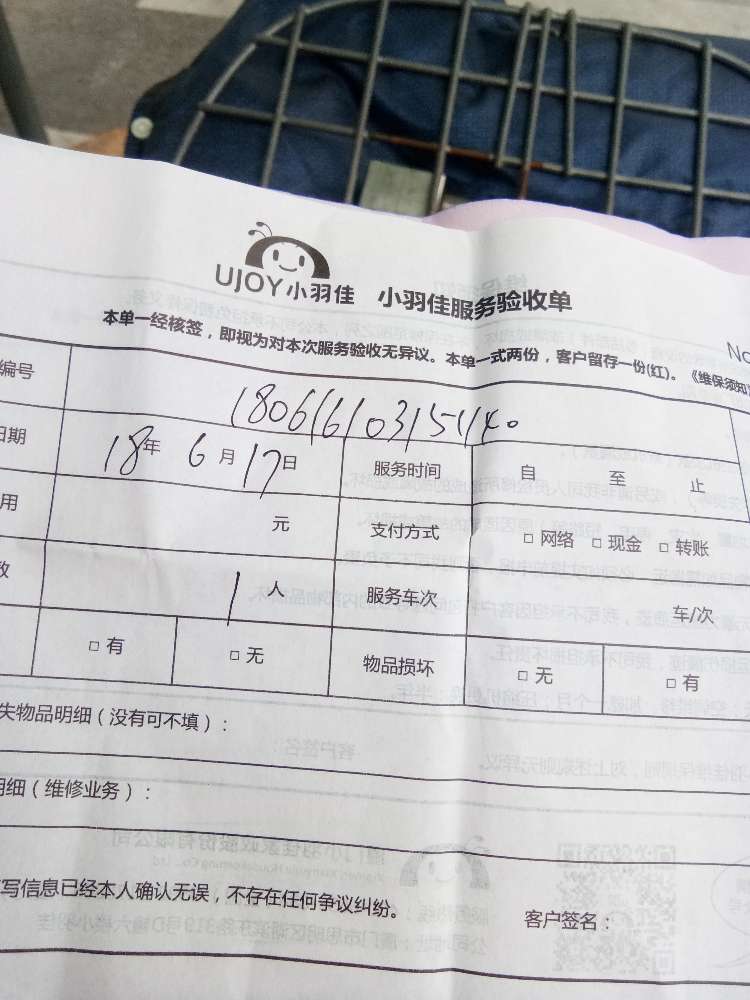 UJOY小羽佳 小羽佳服务验收单
No
本单一经核签，即视为对本次服务验收无异议。本单一式两份，客户留存一份(红)。《维保须知
编号
日期 18年 6月 17日 服务时间 自 至 止
用 元 支付方式 □ 网络 □ 现金 □ 转账
数 1人 服务车次 车/次
□ 有 □ 无 物品损坏 □ 无 □ 有
失物品明细（没有可不填）：
明细（维修业务）：
写信息已经本人确认无误，不存在任何争议纠纷。 客户签名：